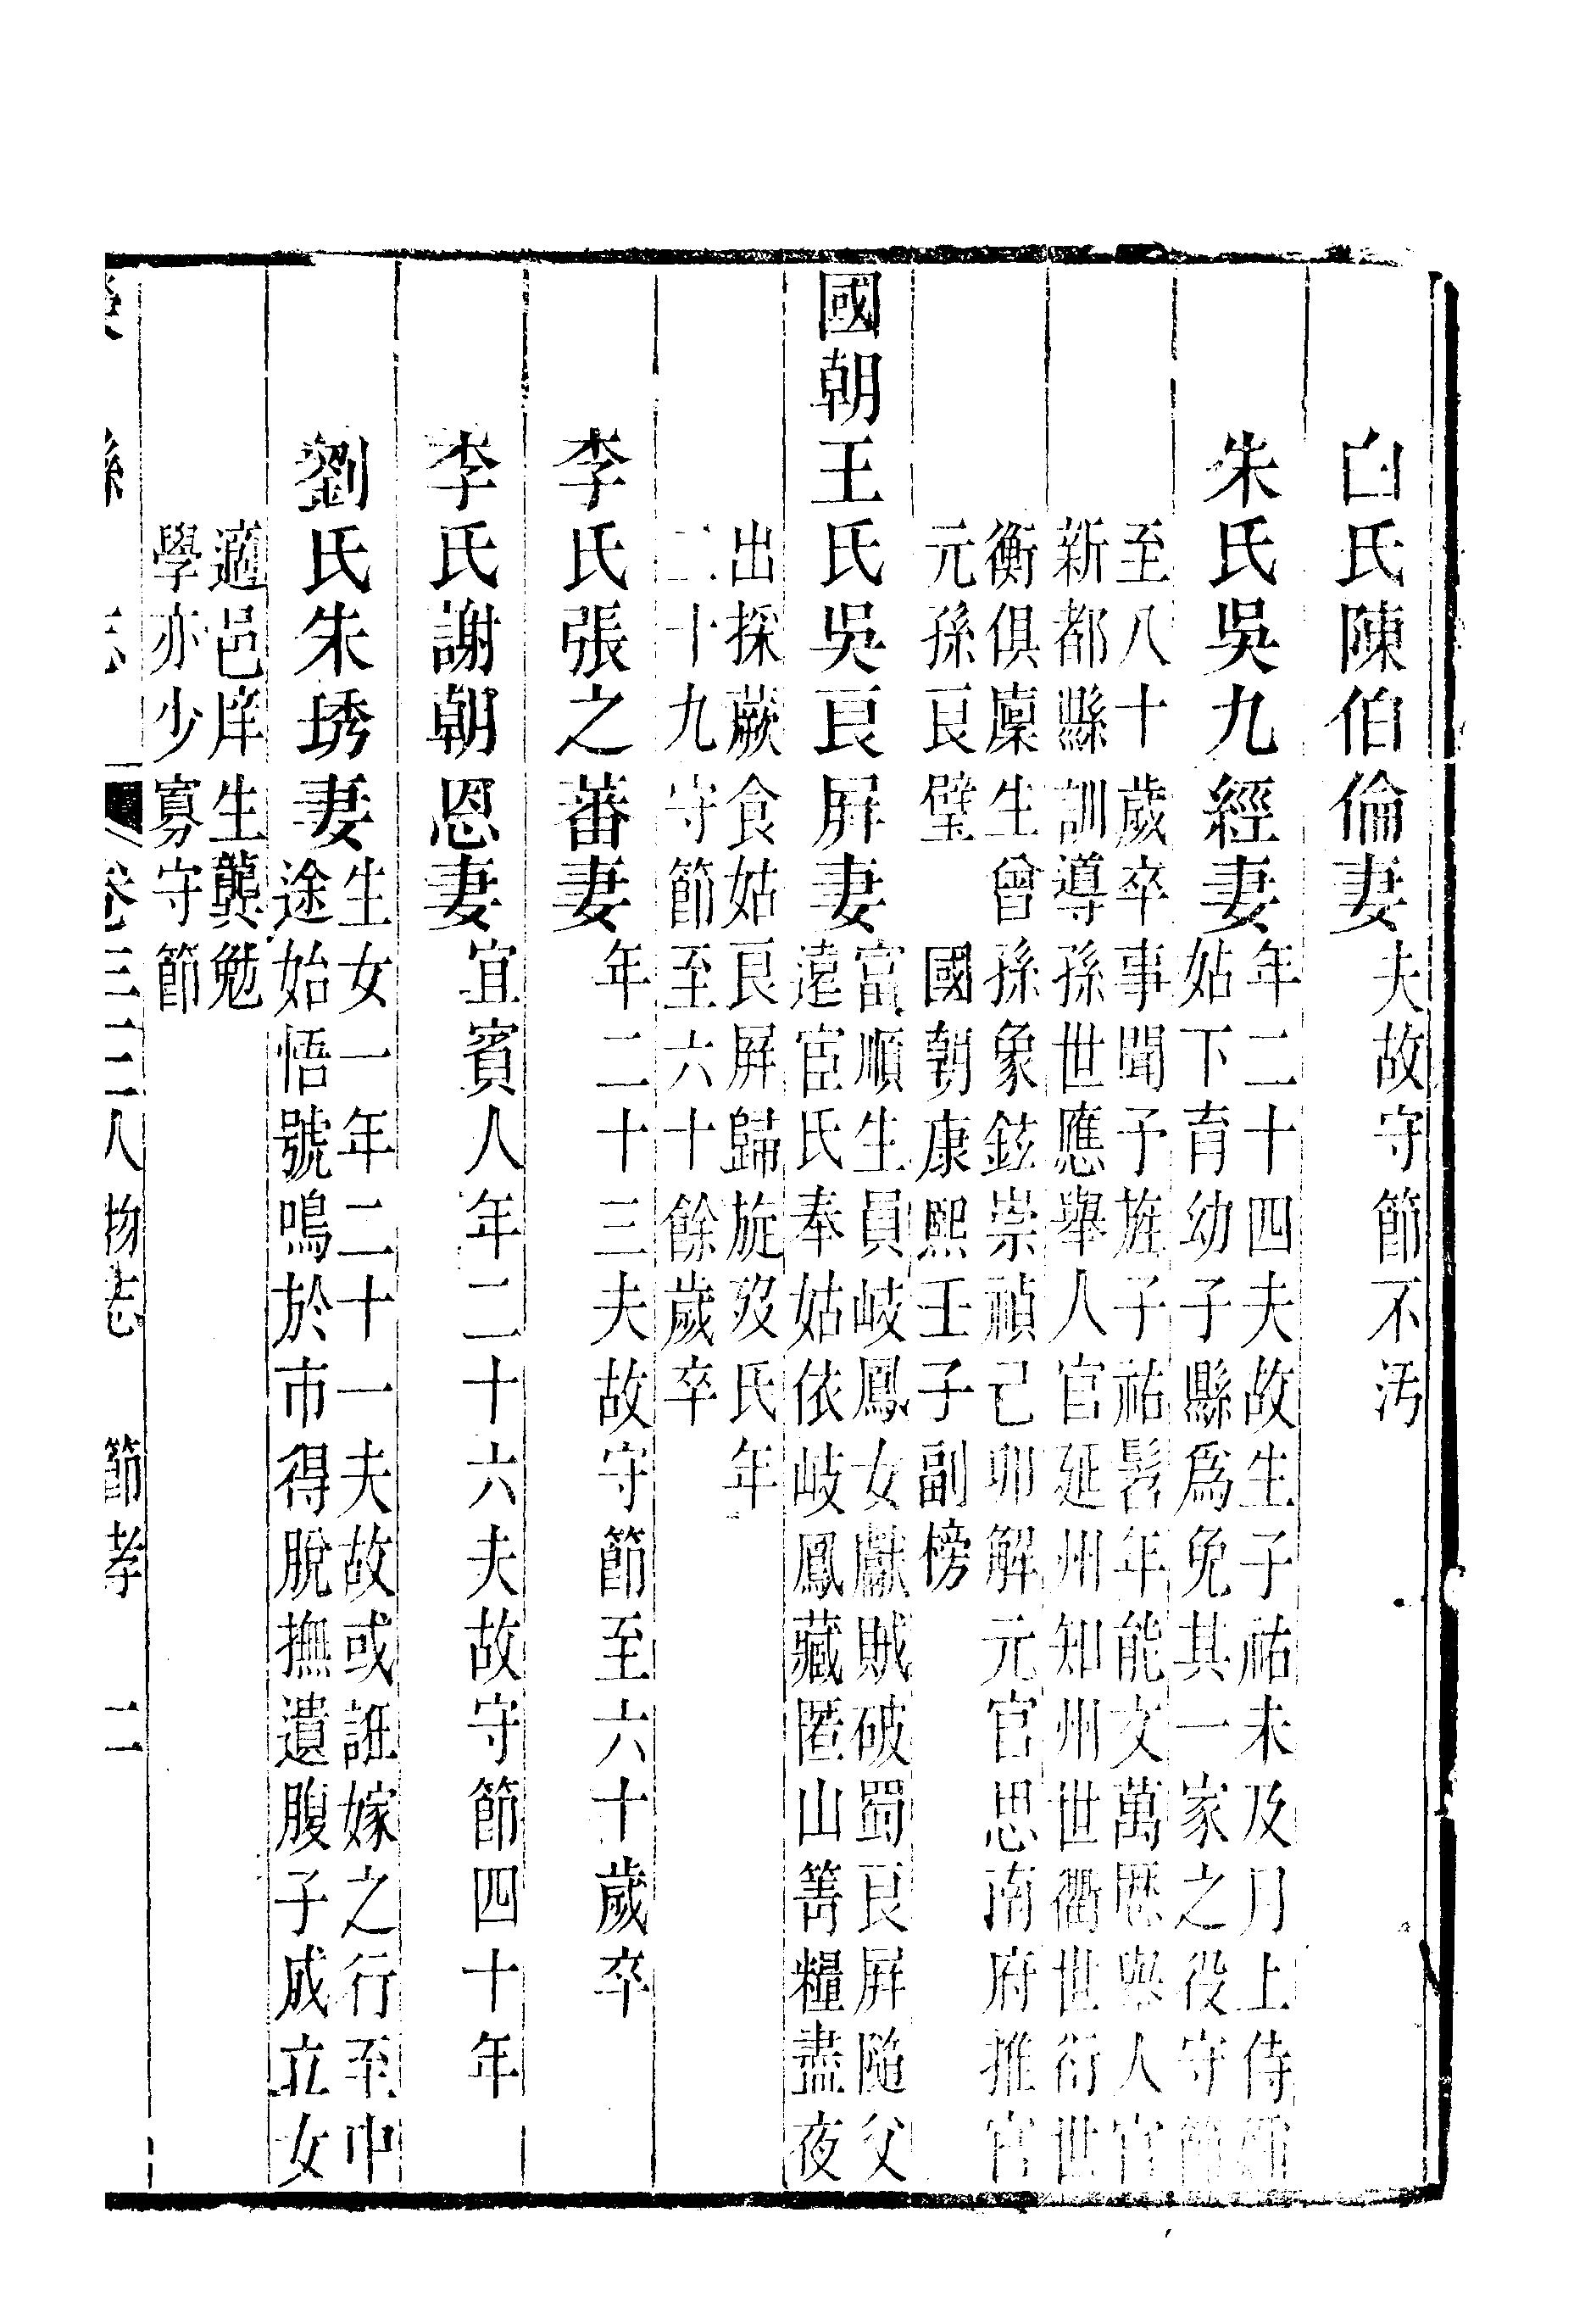 白氏陳伯倫妻夫故守節不汚
朱氏吳九經妻年二十四夫故生子祐未及月上侍
姑下育幼子縣爲免其一家之役守節
至八十歲卒事聞予旌子祐髫年能文萬歷舉人官
新都縣訓導孫世應舉人官延州知州世衢世衍世
衡俱廩生曾孫象鉉崇禎己卯解元官思南府推官
元孫良璧國朝康熙壬子副榜
國朝王氏吳良屏妻富順生員岐鳳女獻賊破蜀良屏隨父
遠宦氏奉姑依岐鳳藏匿山箐糧盡夜
出探蕨食姑良屏歸旋歿氏年
二十九守節至六十餘歲卒
李氏張之蕃妻年二十三夫故守節至六十歲卒
李氏謝朝恩妻宜賓人年二十六夫故守節四十年
劉氏朱琇妻生女一年二十一夫故或誑嫁之行至中
途始悟號鳴於市得脫撫遺腹子成立女
適邑庠生龔勉
學亦少寡守節
縣志 卷三三人物志 節孝 二